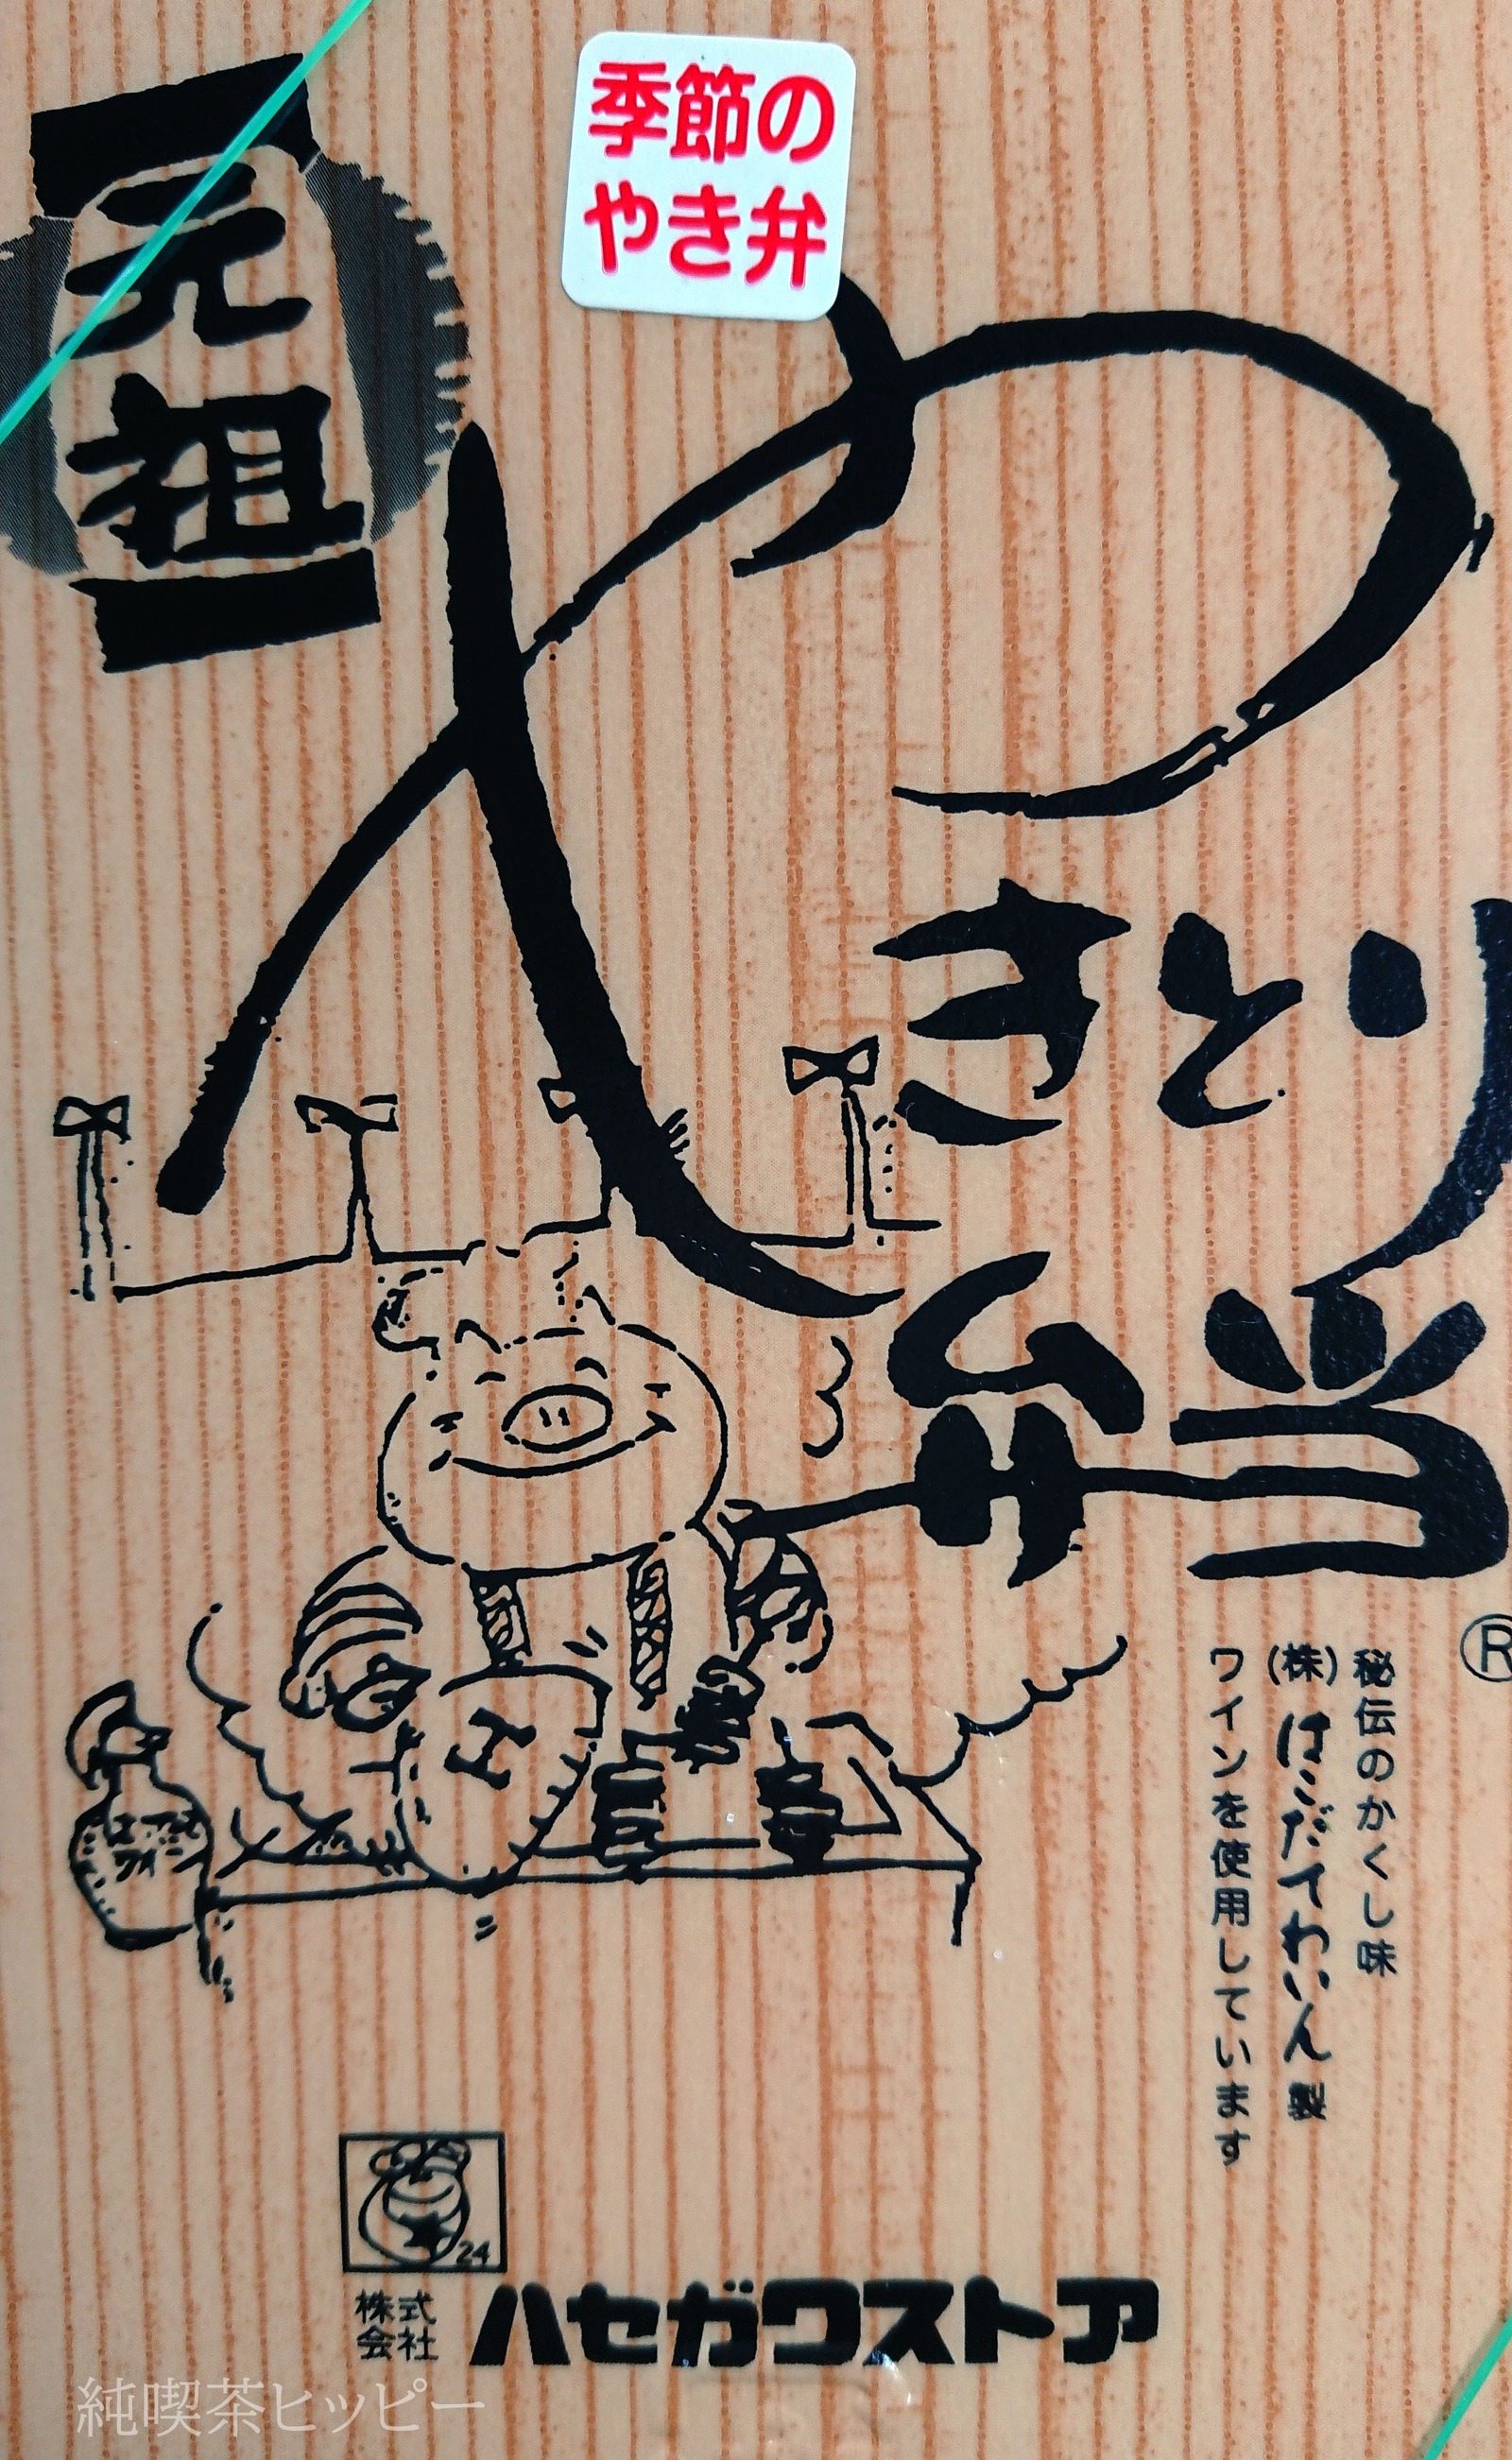 季節の
やき弁
元祖
やきとり
弁当
®
秘伝のかくし味
(株)はこだてわいん製
ワインを使用しています
24
株式
会社
ハセガワストア
純喫茶ヒッピー